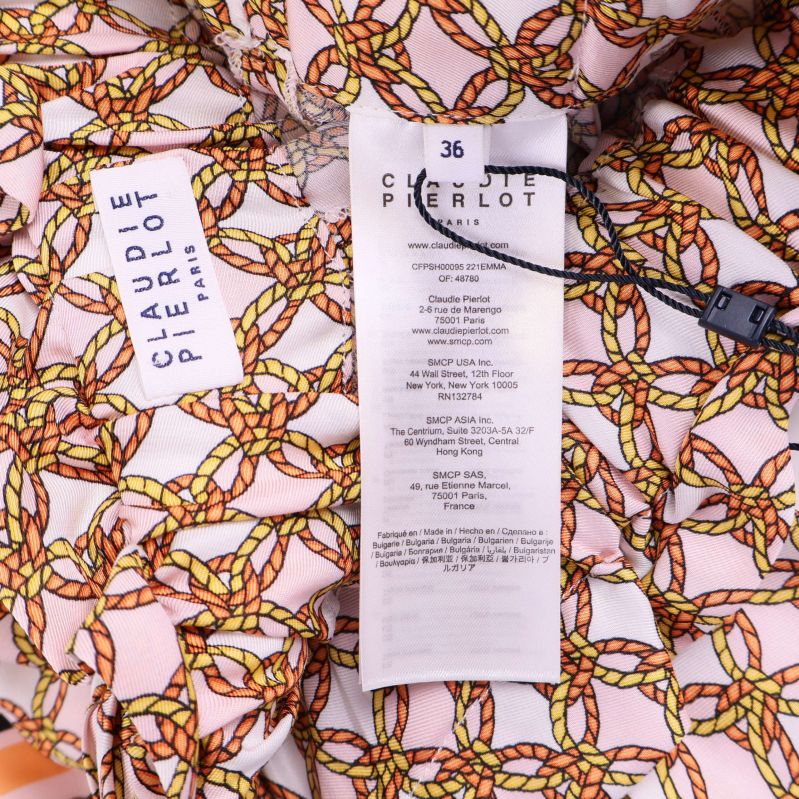 CLAUDIE
PIERLOT
PARIS
36
CLAUDIE
PIERLOT
PARIS
www.claudiepierlot.com
CFPSH00095 221EMMA
OF: 48780
Claudie Pierlot
2-6 rue de Marengo
75001 Paris
www.claudiepierlot.com
www.smcp.com
SMCP USA Inc.
44 Wall Street, 12th Floor
New York, New York 10005
RN132794
SMCP ASIA Inc.
The Centrium, Suite 3203A-5A 32/F
60 Wyndham Street, Central
Hong Kong
SMCP SAS,
49, rue Etienne Marcel,
75001 Paris,
France
Fabriqué en / Made in / Hecho en / Сделано в :
Bulgarie / Bulgaria / Bulgaria / Bulgarien / Bulgarije
/ Bulgaria / Болгария / Bulgária / بلغاريا / Bulgaristan
/ Βουλγαρία / 保加利亚 / 保加利亞 / 불가리아 / ブ
ルガリア